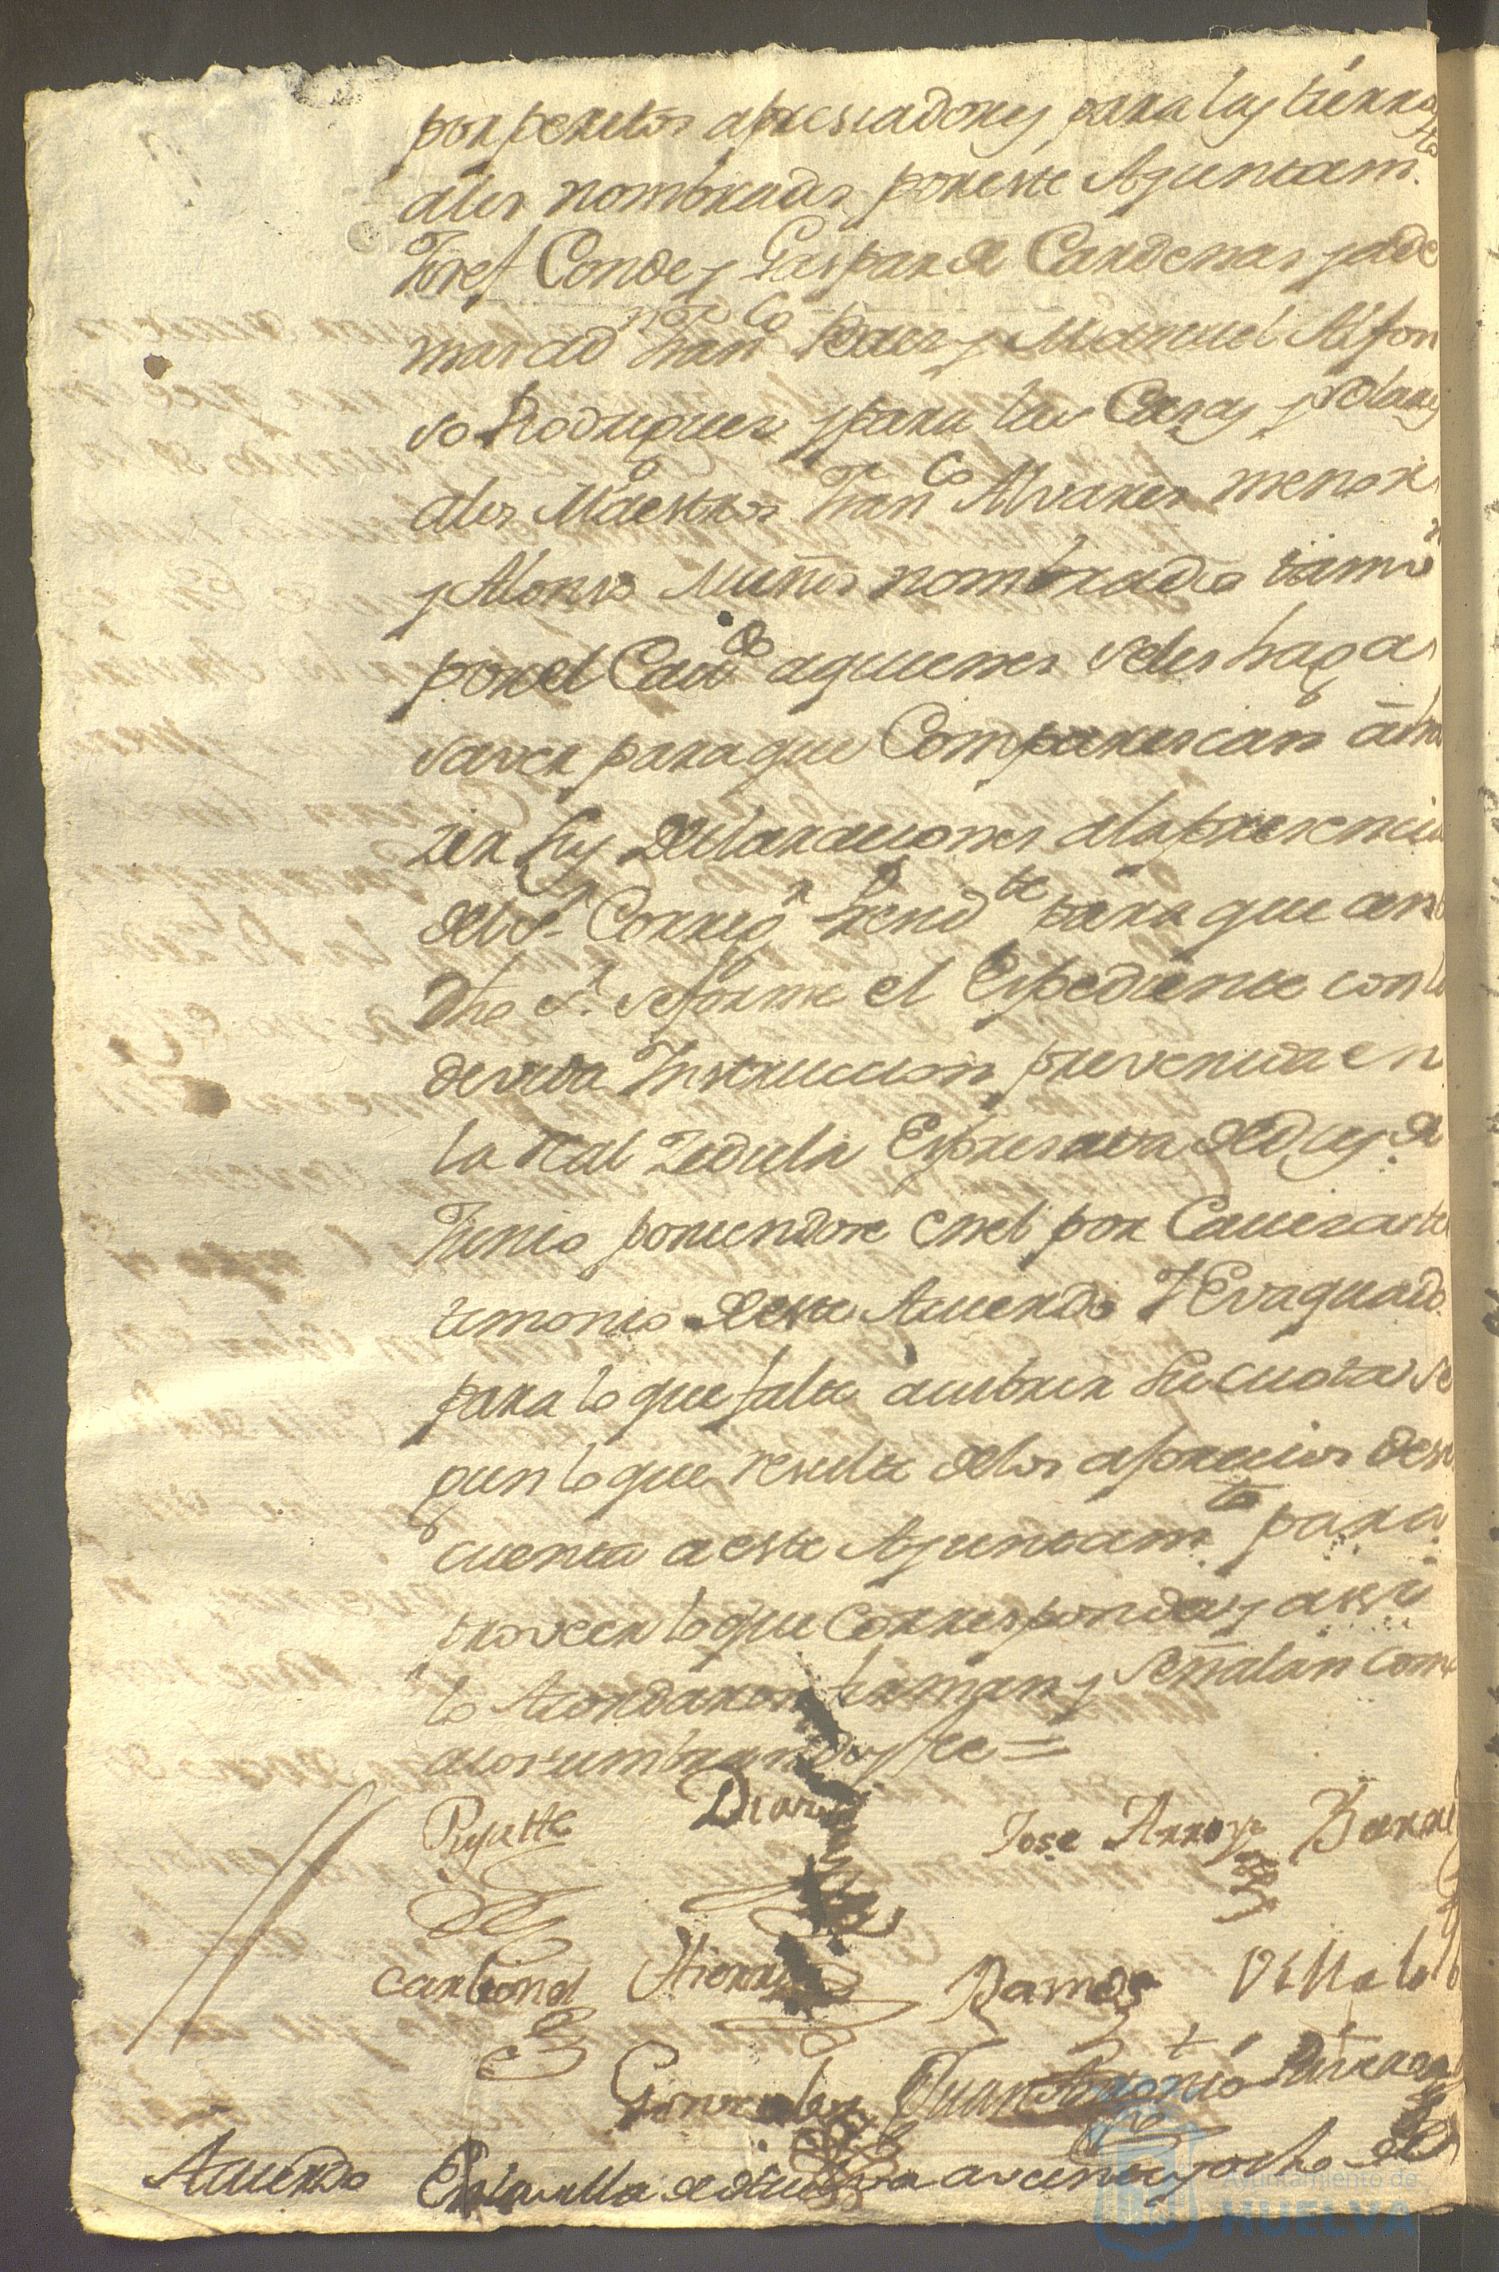 por peritos apresiadores para las tierras
a los nombrados por este Ayuntam.to
Josef Conde y Gaspar de Cardenas y ade
mas ad Fran.co Baez y Manuel Alfon
so Rodriguez y para las Casas y solares
a los Maestros Fran.co Alvarez menor
y Alonso Muñis nombrados tamv.n
por el Cav.do a quienes se les haga
saver para que Comparescan a ha
zer sus declaraciones a la presencia
del S.r Correg.r Presid.te para que ante
dho S.r se forme el Espediente con la
devida Instruccion prevenida en
la Real Zedula Espresada de diez de
Junio poniendose en el por Caveza tes
timonio de este Acuerdo Y Evaquado
para lo que falte a cubrir su cuota se
gun lo que resulte de los aprecios dese
cuenta a este Ayuntam.to para
proveer lo que corresponda y assi
lo Acordaron firman y señalan como
acostumbran doy fee =
Diaz Jose Arroyo
Carbonel Hierro Ramos Villalob
Gonzales Juan Antonio
Acuerdo En la villa de Huelva a veinte y ocho de
Ayuntamiento de
HUELVA